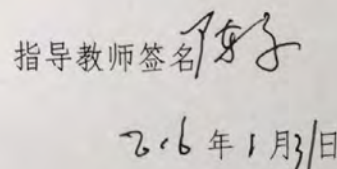 指导教师签名陈
2016年1月31日